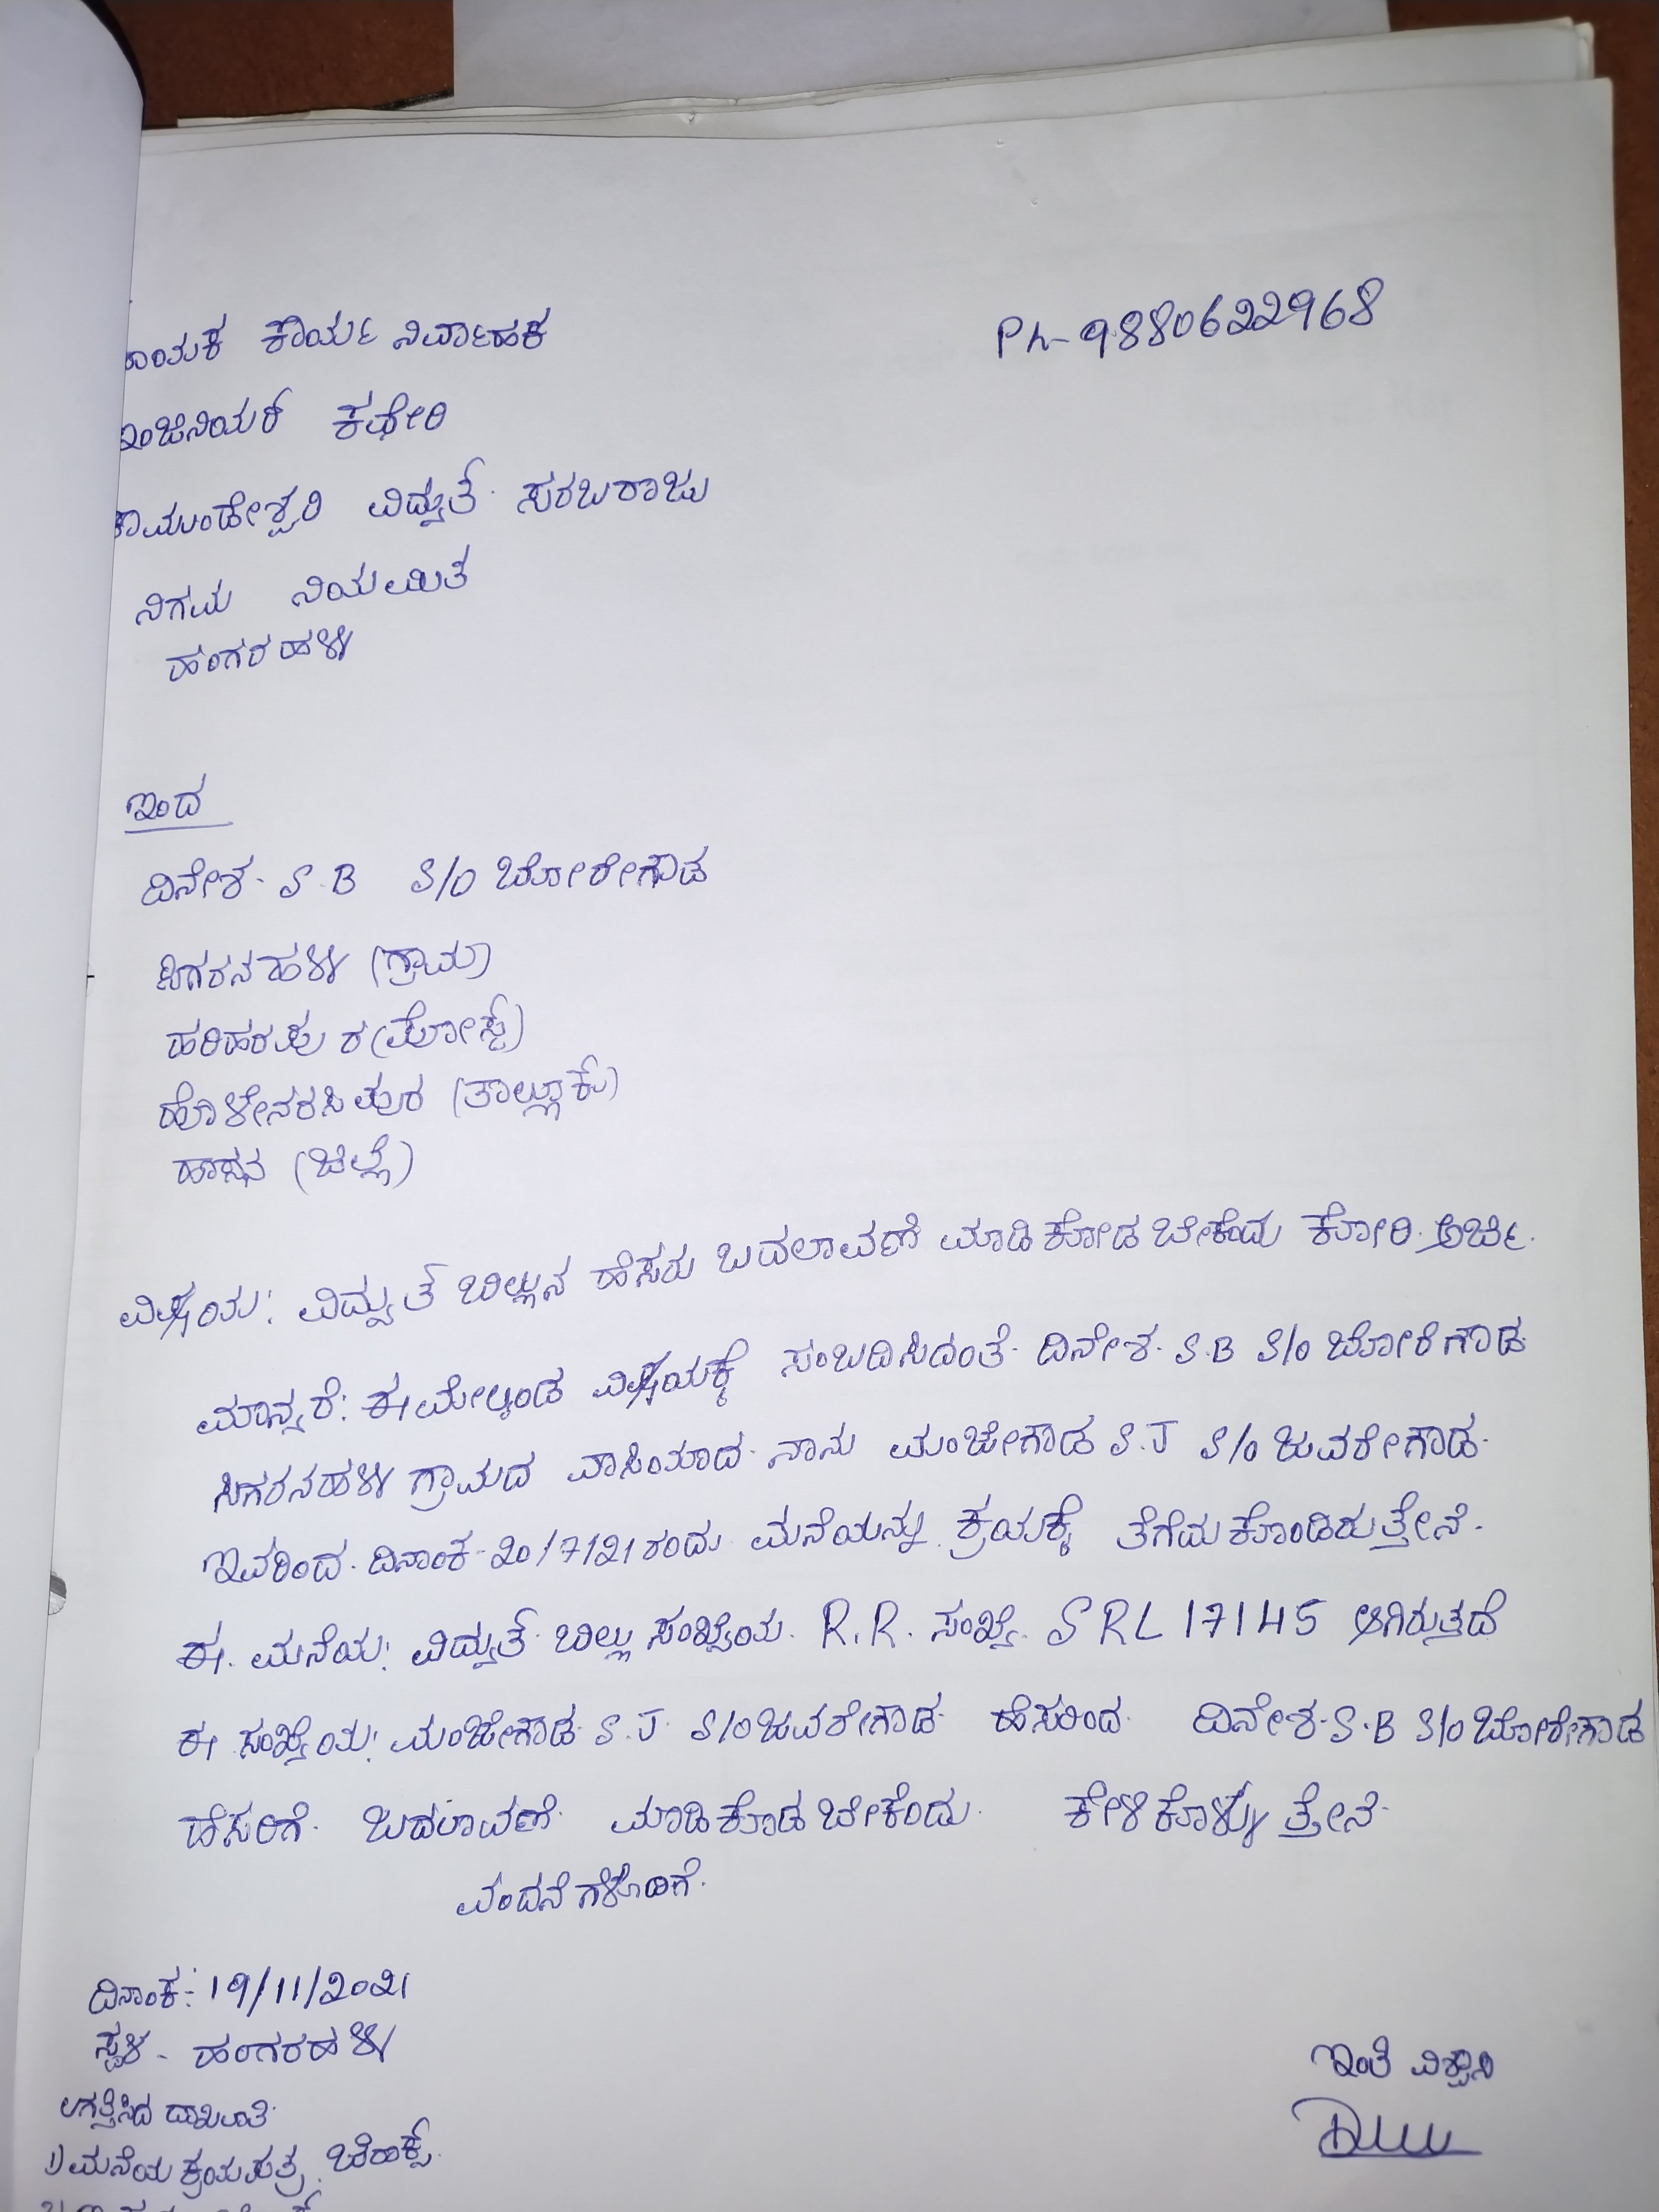 ಾಯಕ ಕಾರ್ಯ ನಿರ್ವಾಹಕ
Ph-9880622968
ಇಂಜಿನಿಯರ್ ಕಛೇರಿ
ಚಾಮುಂಡೇಶ್ವರಿ ವಿದ್ಯುತ್ ಸರಬರಾಜು
ನಿಗಮ ನಿಯಮಿತ
ಹಂಗರಹಳ್ಳಿ
ಇಂದ
ದಿನೇಶ. S.B S/O ಬೋರೇಗೌಡ
ಸಿಗರನಹಳ್ಳಿ (ಗ್ರಾಮ)
ಹರಿಹರಪುರ (ಪೋಸ್ಟ್)
ಹೊಳೇನರಸಿಪುರ (ತಾಲ್ಲೂಕು)
ಹಾಸನ (ಜಿಲ್ಲೆ)
ವಿಷಯ: ವಿದ್ಯುತ್ ಬಿಲ್ಲುನ ಹೆಸರು ಬದಲಾವಣೆ ಮಾಡಿಕೋಡಬೇಕೆಂದು ಕೋರಿ ಅರ್ಜಿ.
ಮಾನ್ಯರೆ: ಈ ಮೇಲ್ಕಂಡ ವಿಷಯಕ್ಕೆ ಸಂಬದಿಸಿದಂತೆ ದಿನೇಶ. S.B S/O ಬೋರೆಗೌಡ
ಸಿಗರನಹಳ್ಳಿ ಗ್ರಾಮದ ವಾಸಿಯಾದ ನಾನು ಮಂಚೇಗೌಡ S.J S/O ಜವರೇಗೌಡ
ಇವರಿಂದ ದಿನಾಂಕ-20/7/21ರಂದು ಮನೆಯನ್ನು ಕ್ರಯಕ್ಕೆ ತೆಗೆದುಕೊಂಡಿರುತ್ತೇನೆ.
ಈ ಮನೆಯ: ವಿದ್ಯುತ್ ಬಿಲ್ಲು ಸಂಖ್ಯೆಯ R.R. ಸಂಖ್ಯೆ SRL17145 ಆಗಿರುತ್ತದೆ
ಈ ಸಂಖ್ಯೆಯ: ಮಂಚೇಗೌಡ S.J. S/O ಜವರೇಗೌಡ ಹೆಸರಿಂದ ದಿನೇಶ.S.B S/O ಬೋರೇಗೌಡ
ಹೆಸರಿಗೆ ಬದಲಾವಣೆ ಮಾಡಿಕೊಡಬೇಕೆಂದು ಕೇಳಿಕೊಳ್ಳುತ್ತೇನೆ
ವಂದನೆಗಳೊಂದಿಗೆ.
ದಿನಾಂಕ: 19/11/2021
ಸ್ಥಳ - ಹಂಗರಹಳ್ಳಿ
ಇಂತಿ ವಿಶ್ವಾಸಿ
ಲಗತ್ತಿಸಿದ ದಾಖಲಾತಿ
1) ಮನೆಯ ಕ್ರಯಪತ್ರ ಜೆರಾಕ್ಸ್